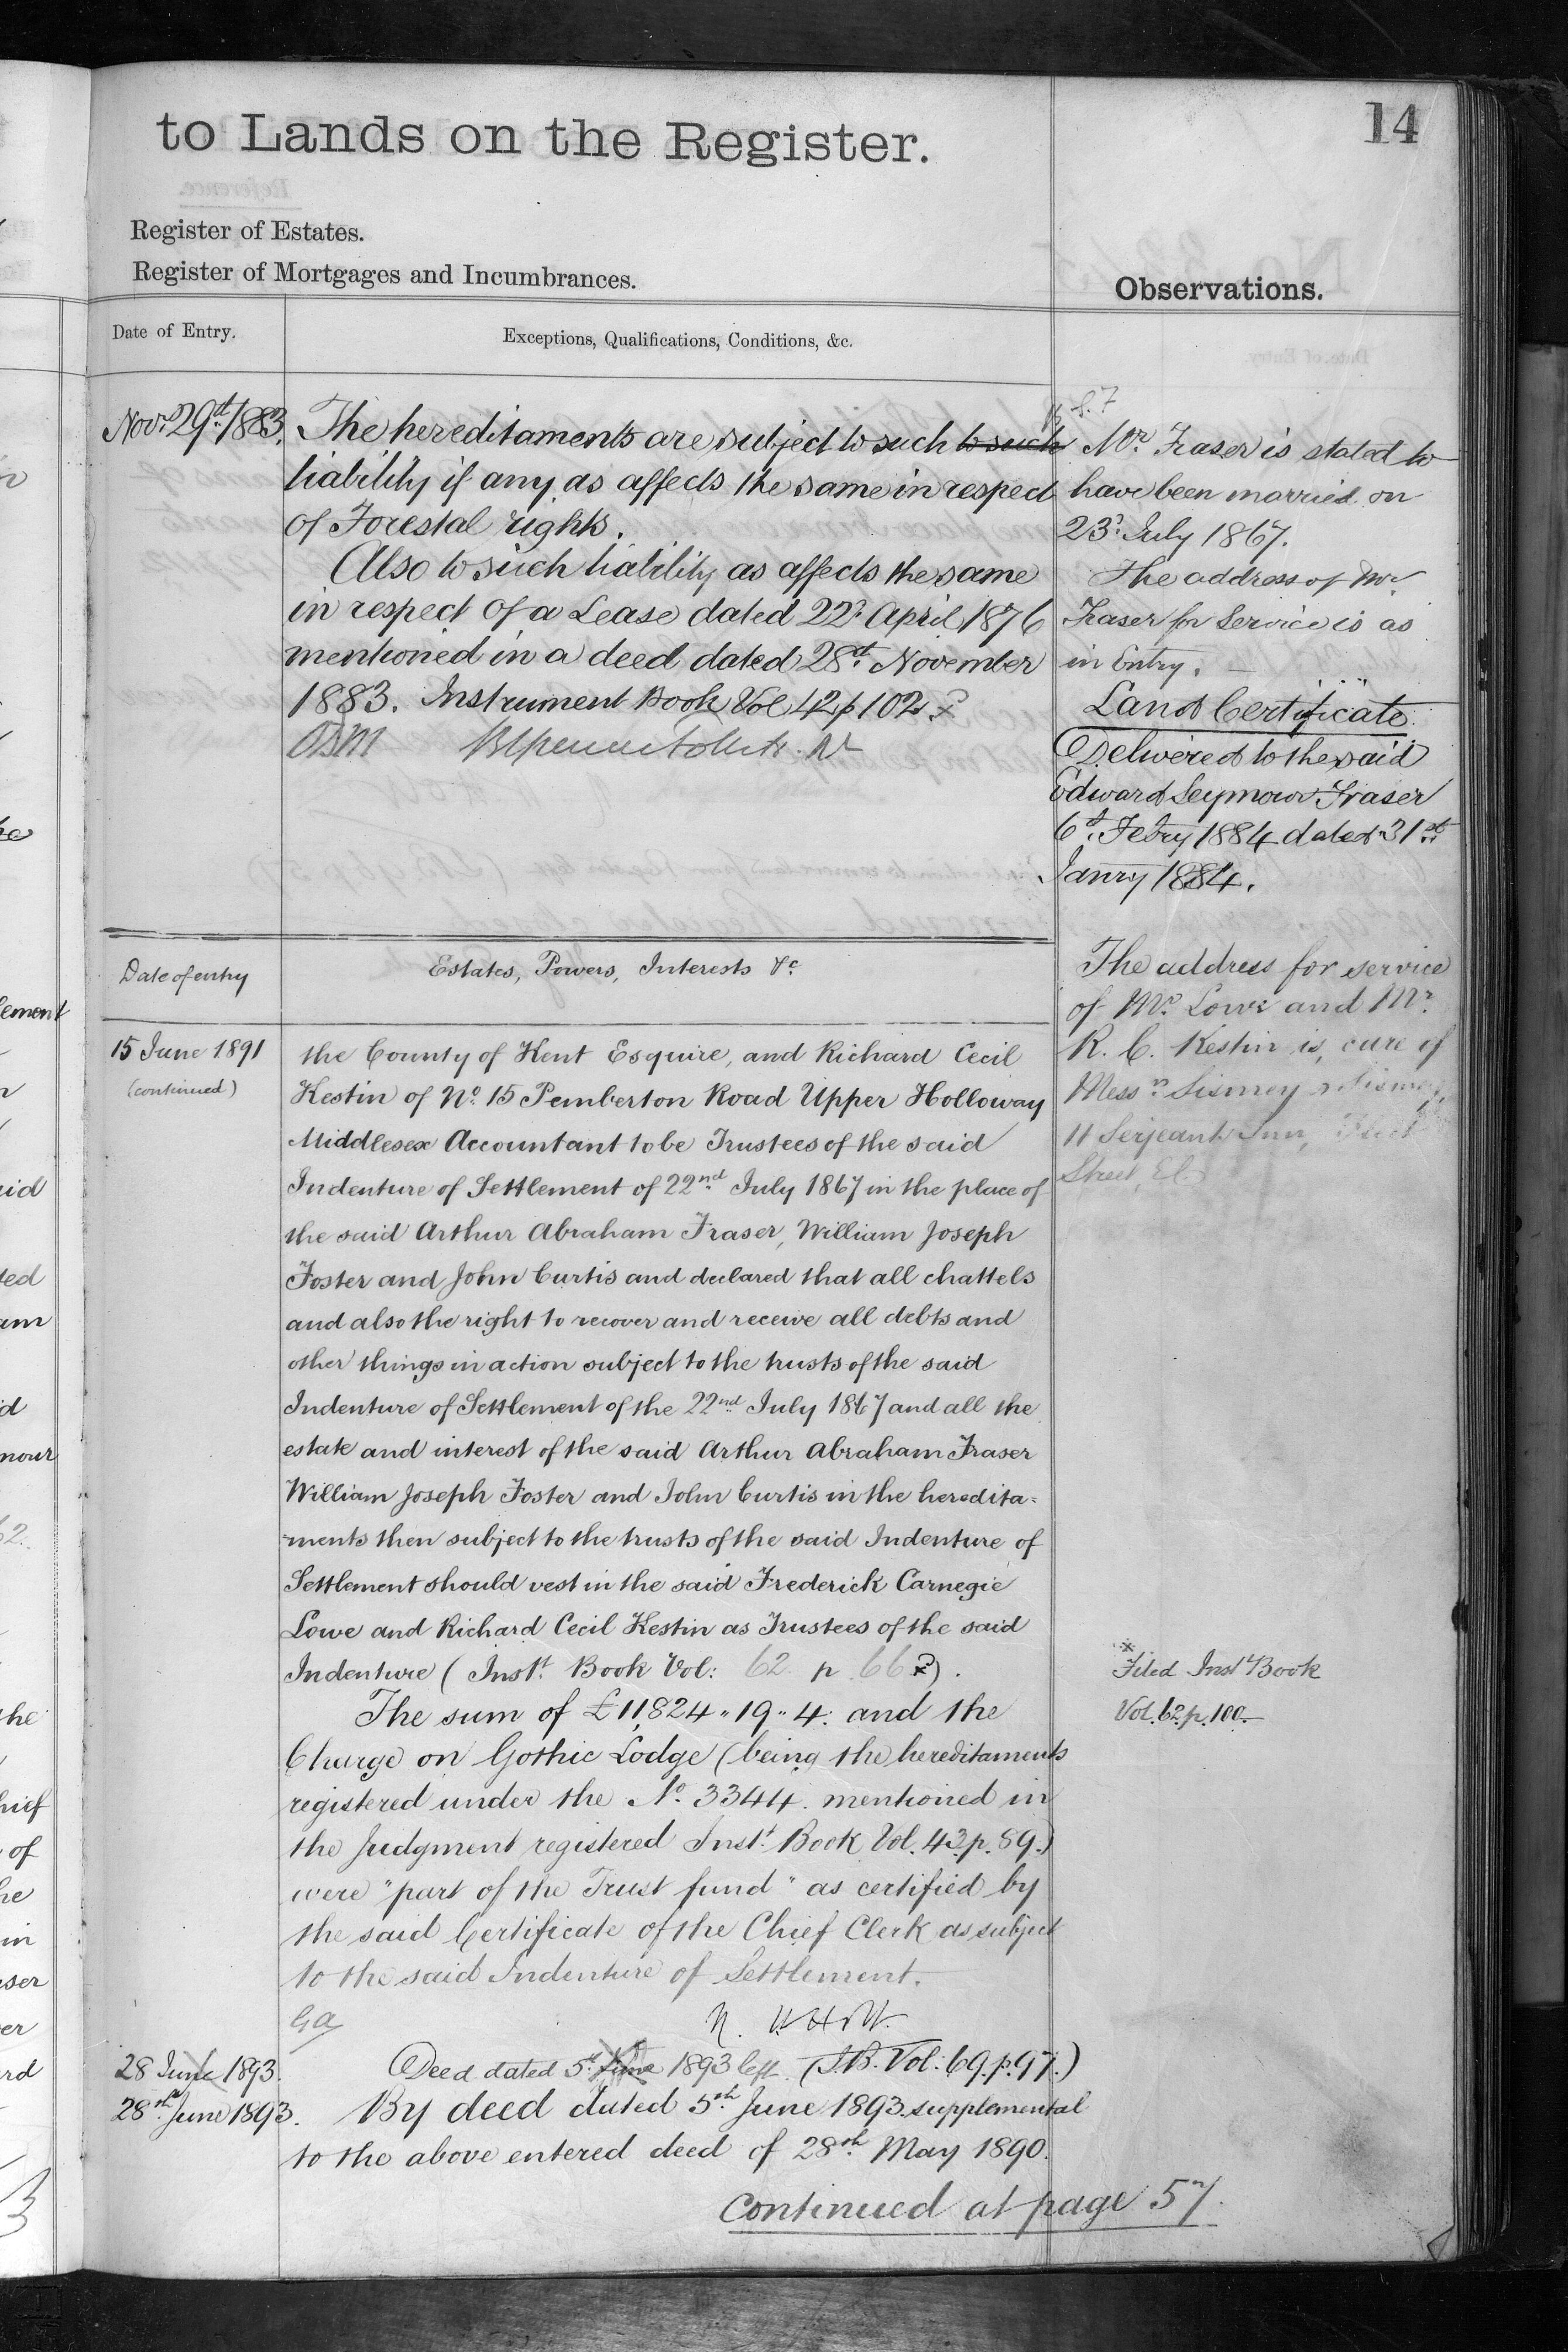 to Lands on the Register.
14
Register of Estates.
Register of Mortgages and Incumbrances.
Observations.
Date of Entry.
Exceptions, Qualifications, Conditions, &c.
Novr. 29th. 1883.
The hereditaments are subject to such to such
liability if any as affects the same in respect
of Forestal rights.
Also to such liability as affects the same
in respect of a Lease dated 22d. April 1876
mentioned in a deed dated 28th. November
1883. Instrument Book Vol 42 p 102
Mr. Fraser is stated to
have been married on
23d. July 1867.
The address of Mr.
Fraser for Service is as
in Entry.
Land Certificate
Delivered to the said
Edward Seymour Fraser
6th. Febry 1884 dated 31st
Janry 1884.
Date of entry
Estates, Powers, Interests &c.
15 June 1891
(continued)
the County of Kent Esquire, and Richard Cecil
Kestin of No. 15 Pemberton Road Upper Holloway
Middlesex Accountant to be Trustees of the said
Indenture of Settlement of 22nd July 1867 in the place of
the said Arthur Abraham Fraser, William Joseph
Foster and John Curtis and declared that all chattels
and also the right to recover and receive all debts and
other things in action subject to the trusts of the said
Indenture of Settlement of the 22nd July 1867 and all the
estate and interest of the said Arthur Abraham Fraser
William Joseph Foster and John Curtis in the heredita=
=ments then subject to the trusts of the said Indenture of
Settlement should vest in the said Frederick Carnegie
Lowe and Richard Cecil Kestin as Trustees of the said
Indenture (Inst. Book Vol: 62 p 66).
The sum of £11,824..19..4. and the
Charge on Gothic Lodge (being the hereditaments
registered under the No. 3344. mentioned in
the Judgment registered Inst. Book Vol. 43. p. 89.)
were "part of the Trust fund" as certified by
the said Certificate of the Chief Clerk as subject
to the said Indenture of Settlement.
The address for service
of Mr. Lowe and Mr.
R. C. Kestin is, care of
Messrs. Sismey & Sismey,
11 Serjeants Inn, Fleet
Street, E.C.
Filed Inst Book
Vol. 62. p. 100.
28 June 1893.
Deed dated 5th June 1893 left. (I.B. Vol: 69. p. 97.)
28th June 1893.
By deed dated 5th June 1893. supplemental
to the above entered deed of 28th May 1890.
Continued at page 57.